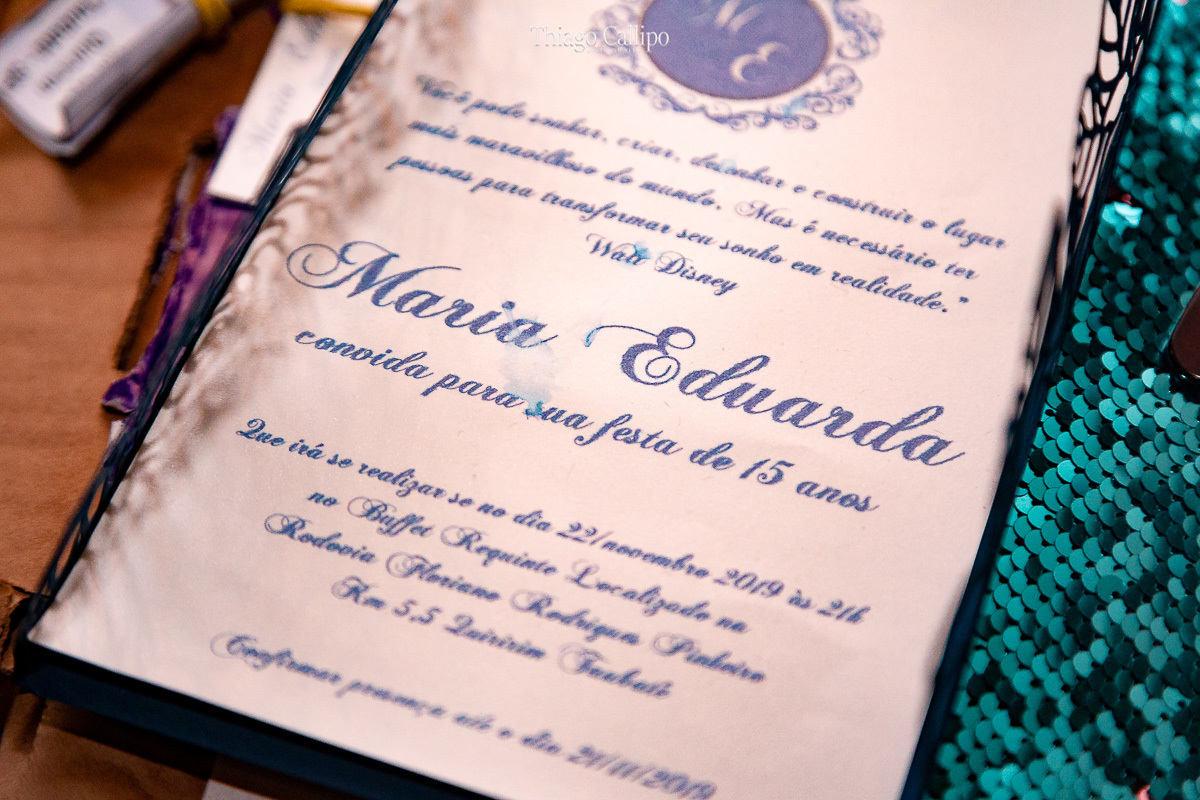 Thiago Callipo
M
E
Você pode sonhar, criar, desenhar e construir o lugar
mais maravilhoso do mundo. Mas é necessário ter
pessoas para transformar seu sonho em realidade."
Walt Disney
Maria Eduarda
convida para sua festa de 15 anos
Que irá se realizar se no dia 22/novembro 2019 às 21h
no Buffet Requinte Localizado na
Rodovia Floriano Rodrigues Pinheiro
Km 5,5 Quiririm Taubaté
Confirmar presença até o dia